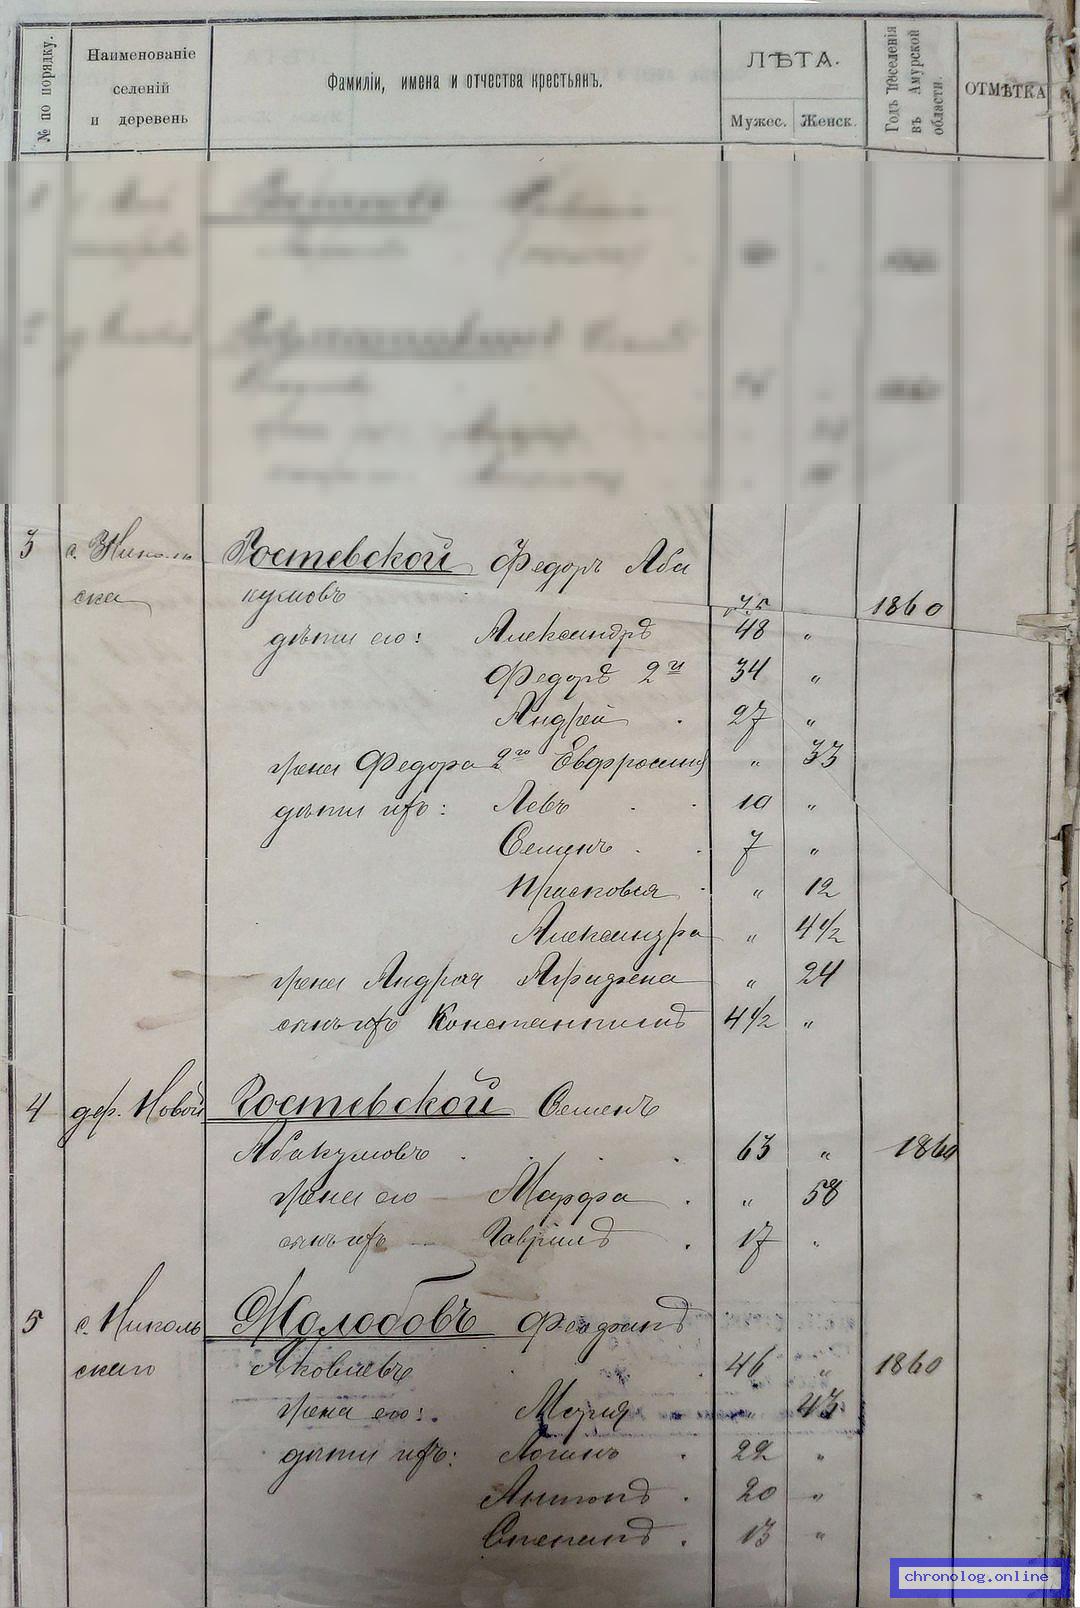 № по порядку.
Наименованіе
селеній
и деревень
Фамиліи, имена и отчества крестьянъ.
ЛѢТА.
Мужес. Женск.
Годъ поселенія
въ Амурской
области.
ОТМѢТКА
3 с. Николь Гостевской Федоръ Аба
ска кумовъ 75 1860
дѣти его: Александръ 48 "
Федоръ 2й 34 "
Андрей 27 "
жена Федора 2го Евфросинія " 33
дѣти ихъ: Левъ 10 "
Семенъ 7 "
Прасковья " 12
Александра " 4 1/2
жена Андрея Агрипена " 24
сынъ ихъ Константинъ 4 1/2 "
4 дер. Новой Гостевской Семенъ
Абакумовъ 63 " 1860
жена его Марфа " 58
сынъ ихъ Гавріилъ 17 "
5 с. Николь Жолобовъ
скаго Яковлевъ 46 " 1860
жена его: Марія " 43
дѣти ихъ: Логинъ 22 "
Антонъ 20 "
Степанъ 13 "
chronolog.online